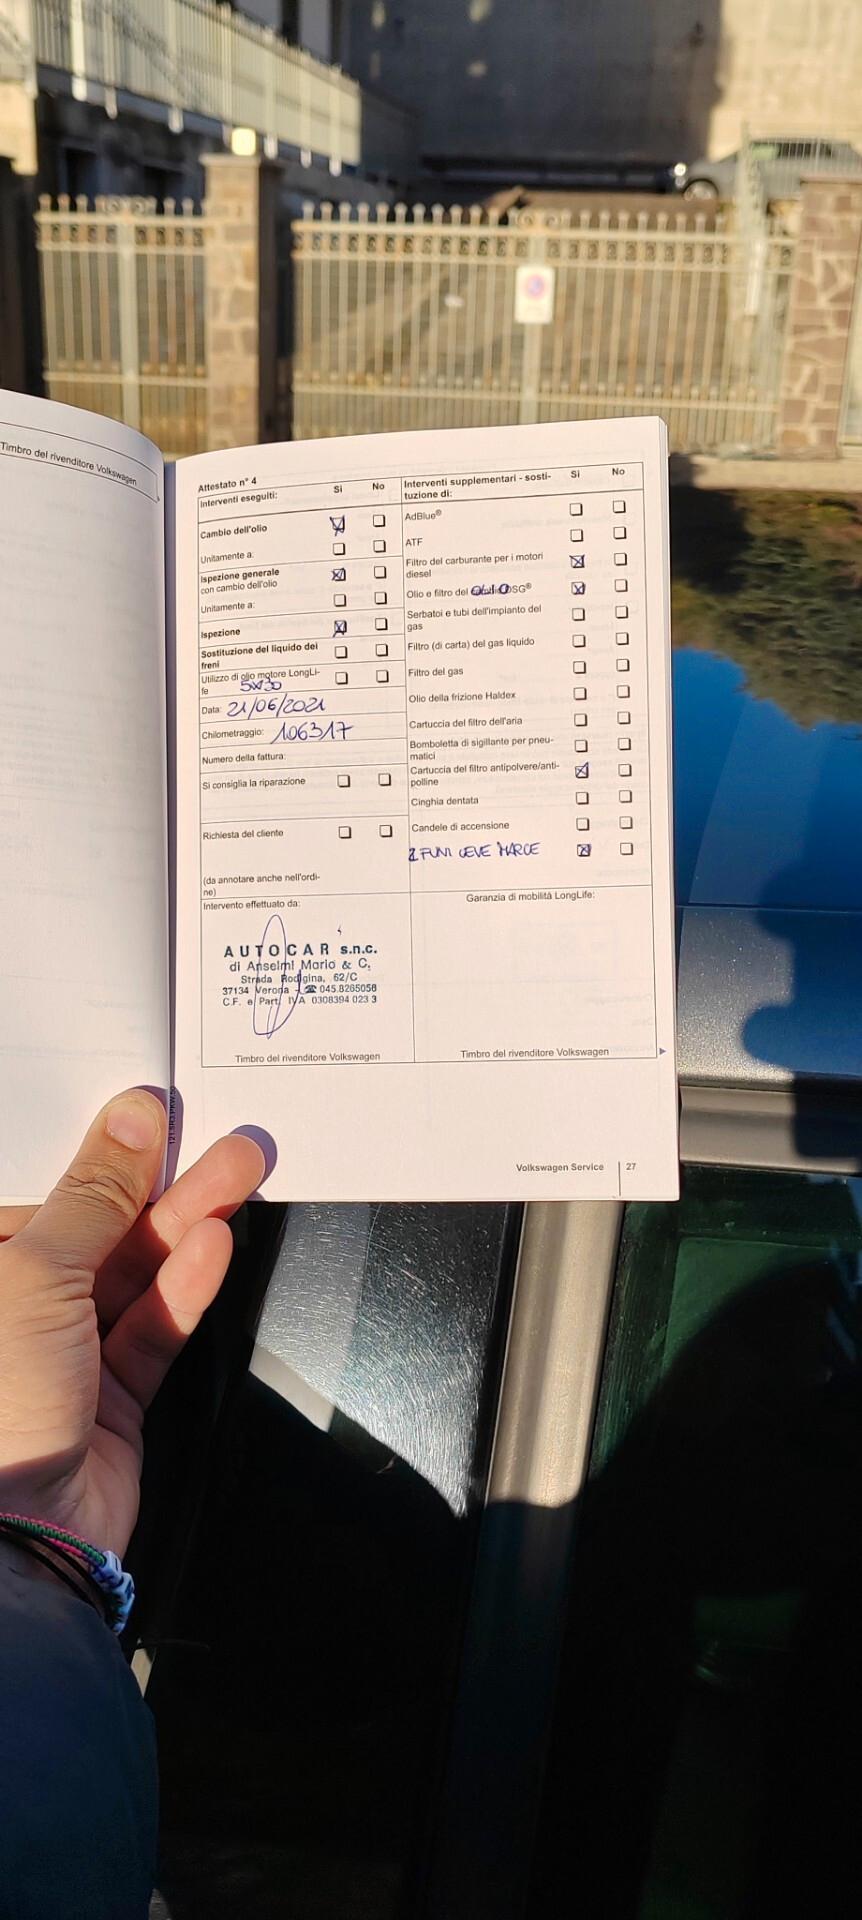 Timbro del rivenditore Volkswagen
Attestato n° 4
Interventi eseguiti:
Sì
No
Cambio dell'olio
Unitamente a:
Ispezione generale
con cambio dell'olio
Unitamente a:
Ispezione
Sostituzione del liquido dei
freni
Utilizzo di olio motore LongLi-
fe
5W30
Data: 21/06/2021
Chilometraggio: 106317
Numero della fattura:
Si consiglia la riparazione
Richiesta del cliente
(da annotare anche nell'ordi-
ne)
Interventi supplementari - sosti-
tuzione di:
Sì
No
AdBlue®
ATF
Filtro del carburante per i motori
diesel
Olio e filtro del DSG®
Serbatoi e tubi dell'impianto del
gas
Filtro (di carta) del gas liquido
Filtro del gas
Olio della frizione Haldex
Cartuccia del filtro dell'aria
Bomboletta di sigillante per pneu-
matici
Cartuccia del filtro antipolvere/anti-
polline
Cinghia dentata
Candele di accensione
2 FUNI LEVE MARCE
Intervento effettuato da:
AUTOCAR s.n.c.
di Anselmi Mario & C.
Strada Rodigina, 62/C
37134 Verona - ☎ 045.8265058
C.F. e Part. IVA 0308394 023 3
Timbro del rivenditore Volkswagen
Garanzia di mobilità LongLife:
Timbro del rivenditore Volkswagen
Volkswagen Service
27